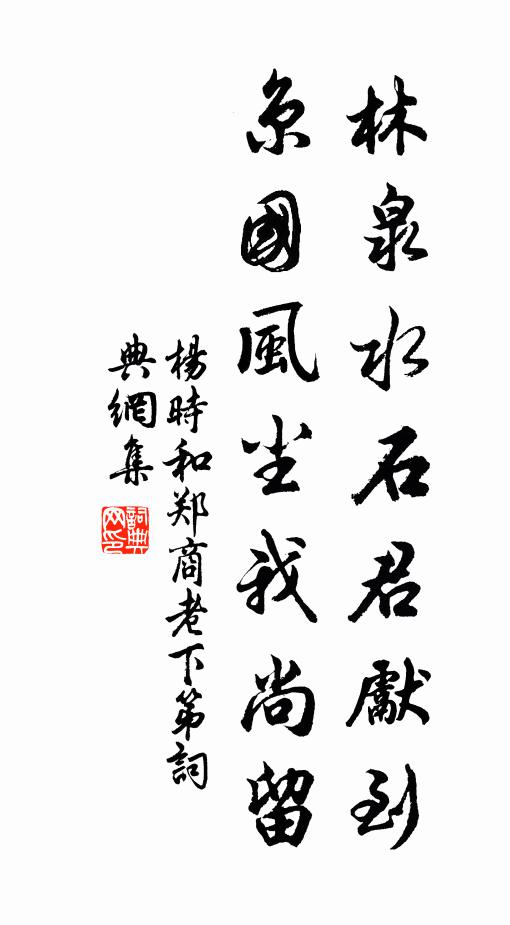 林泉水石君獻到
京國風尘我尚留
楊時和郑商老下第詞
典網集
詞典网印